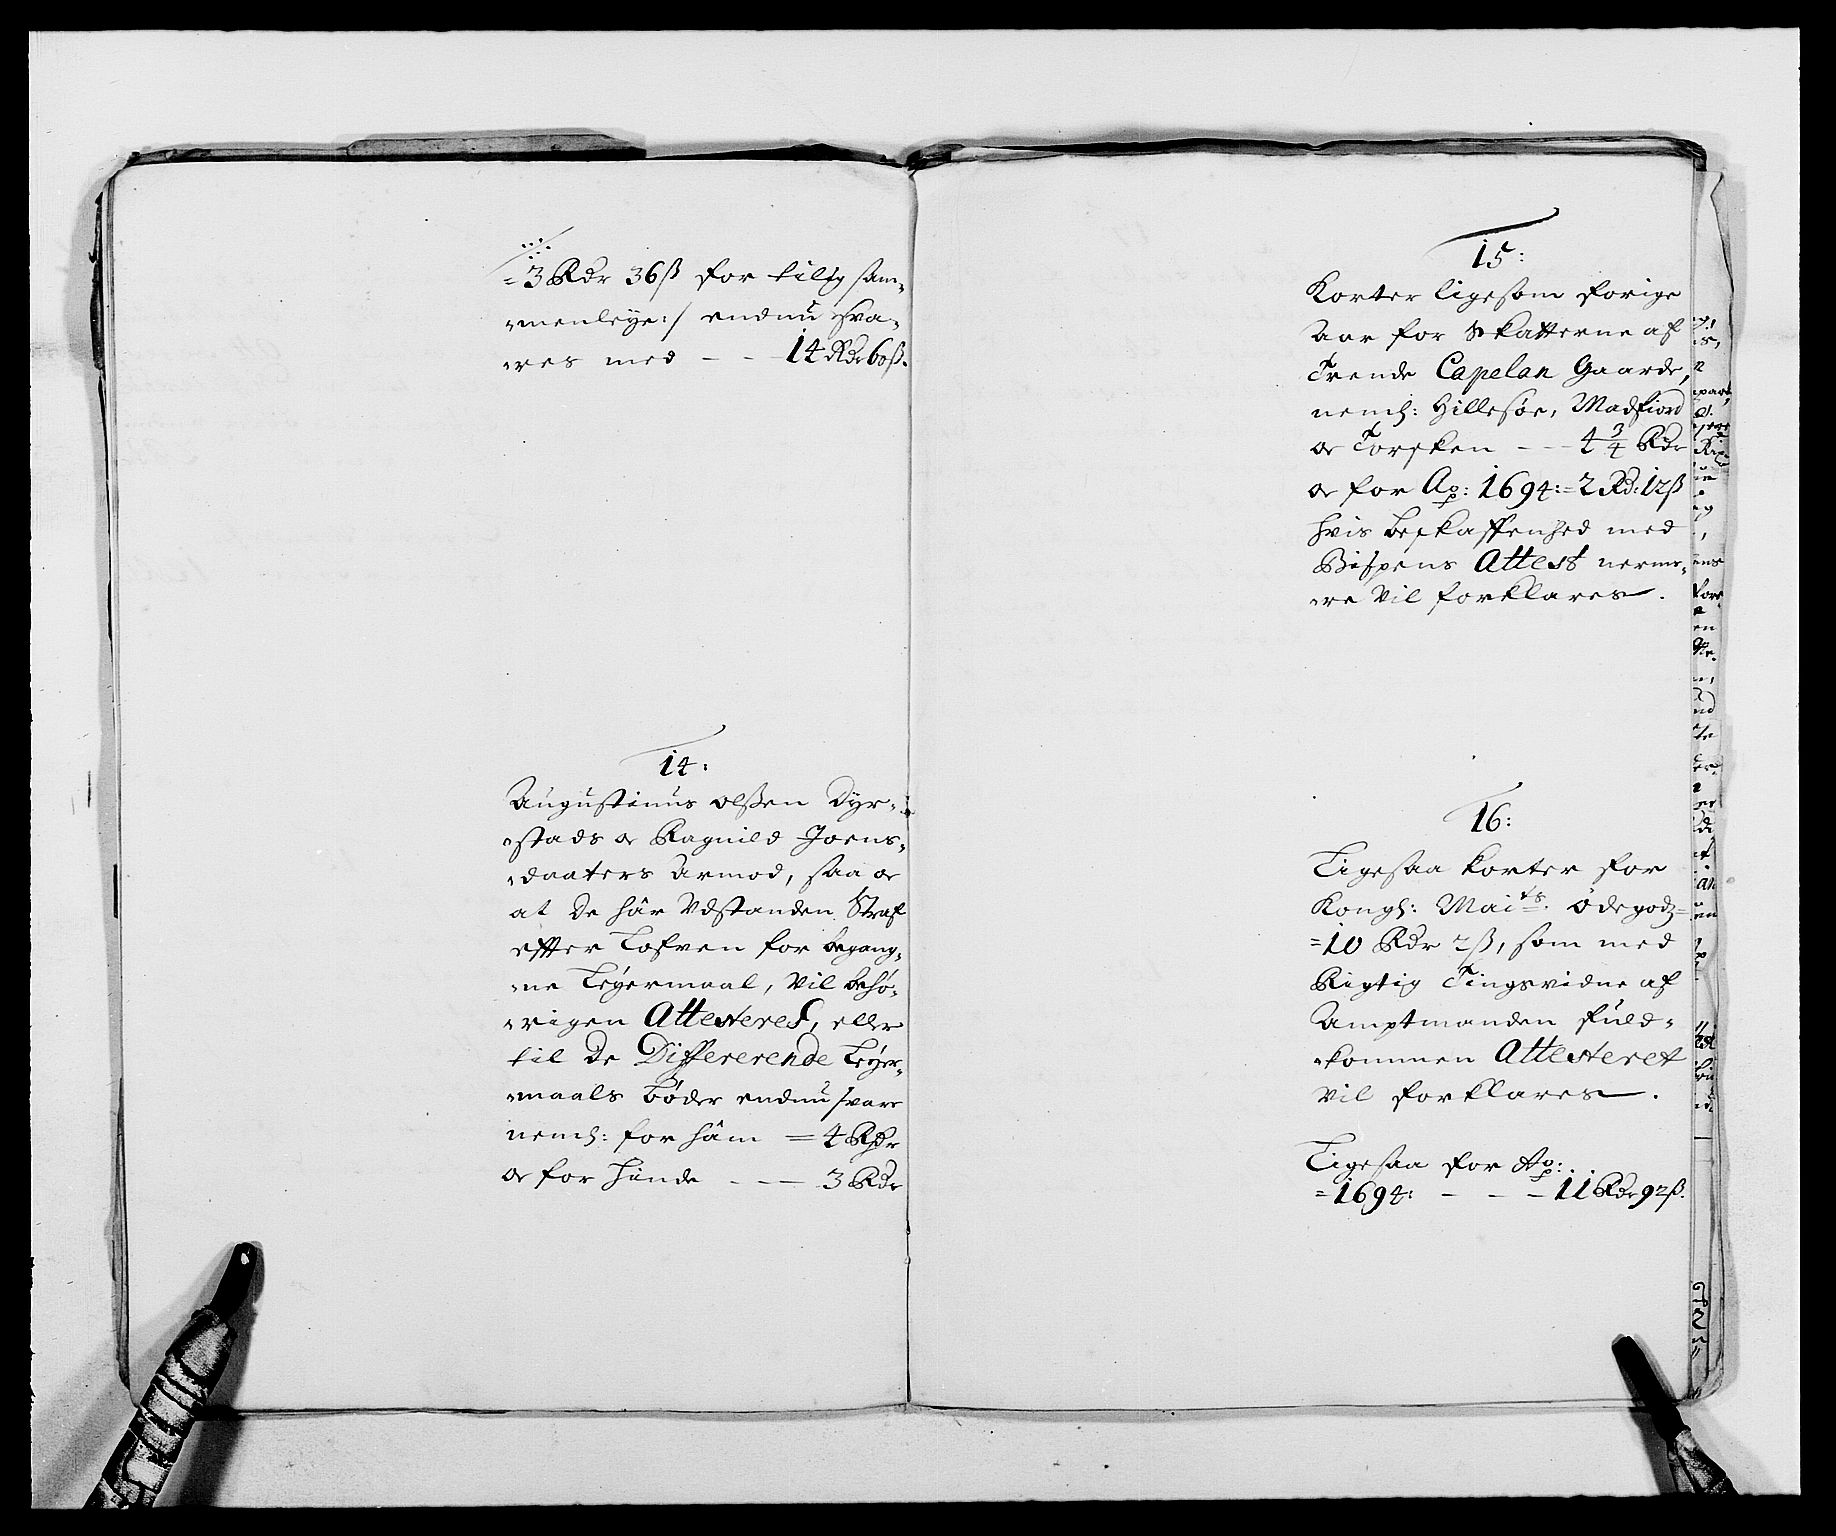 =3 Rdr 36ß for tilig sam-
menleye:/ endnu sva-
res med - - 14 Rdr 60ß.
14:
Augustinus olßen Dyr-
stads oc Ragnild Joens-
daaters Armod, saa oc
at de har Udstanden Straf
efter Lofven for begang-
ne Leyermaal, vil behø-
rigen Attesteres, eller
til de Differerende Leyer-
maals bøder endnu svare
neml: for ham = 4 Rdr
oc for hinde - - - 3 Rdr
15:
Korter ligesom forige
Aar for Skatterne af
Trende Capelan Gaarde,
neml: Hillesøe, Madfiord
oc Torsken - - - 4 3/4 Rdr
oc for Ao: 1694:=2 Rd: 12ß
hvis beskaffenhed med
Bispens Attest nerme-
re vil forklares.
16:
Ligesaa korter for
Kongl: Maits. Ødegodz=
=10 Rdr 2ß, som med
Rigtig Tingsvidne af
Amptmanden fuld-
kommen Attesteret
vil forklares.
Ligesaa for Ao:
=1694: - - - 11 Rdr 92ß.